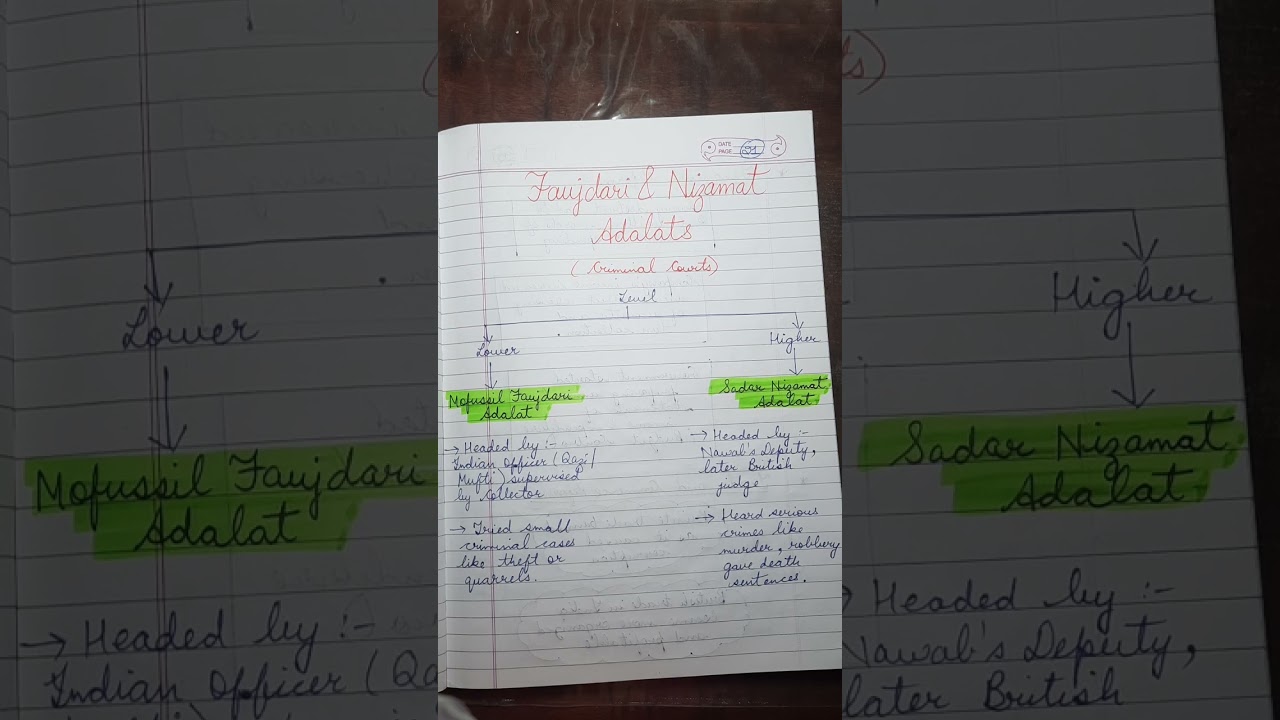 DATE
PAGE 21
Faujdari & Nizamat
Adalats
(Criminal Courts)
Level
Lower
Higher
Mofussil Faujdari
Adalat
Sadar Nizamat
Adalat
→ Headed by :-
Indian Officer (Qazi/
Mufti) supervised
by Collector
→ Tried small
criminal cases
like theft or
quarrels.
→ Headed by :-
Nawab's Deputy,
later British
judge
→ Heard serious
crimes like
murder, robbery
gave death
sentences.
ts)
Lower
Higher
Mofussil Faujdari
Adalat
Sadar Nizamat
Adalat
→ Headed by :-
Indian Officer (Qa
Headed by :-
Nawab's Deputy,
later British